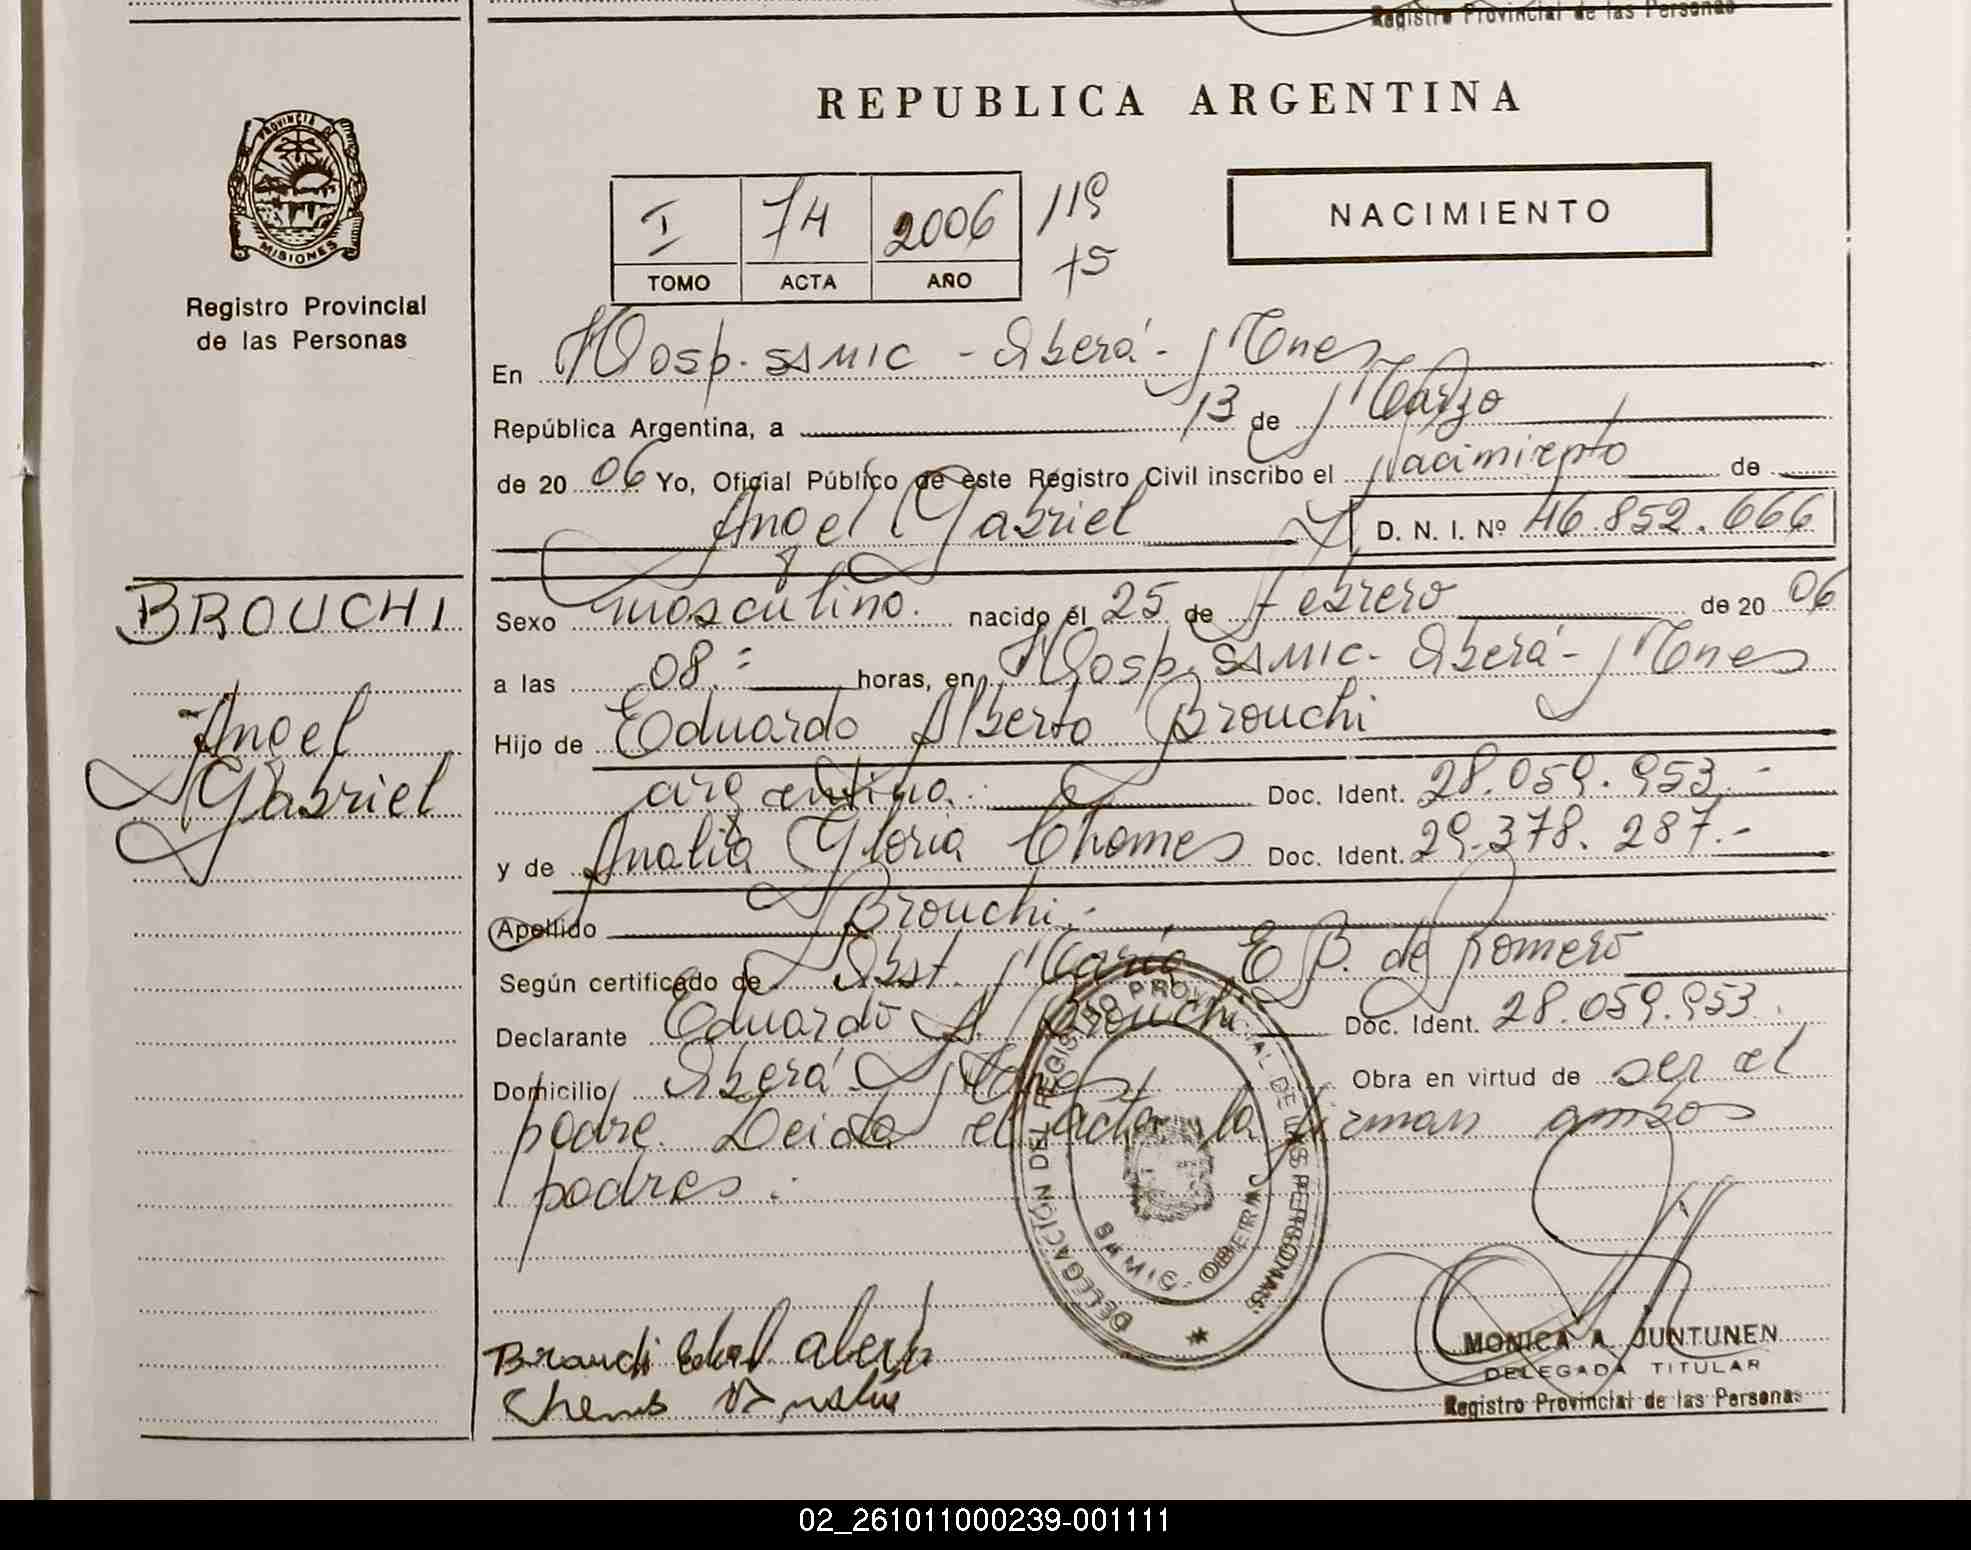 Registro Provincial de las Personas
REPUBLICA ARGENTINA
PROVINCIA DE
MISIONES
Registro Provincial
de las Personas
I 74 2006 119
75
TOMO ACTA AÑO
NACIMIENTO
En Hosp. SAMIC - Oberá - Mnes
República Argentina, a 13 de Marzo
de 20 06 Yo, Oficial Público de este Registro Civil inscribo el Nacimiento de
Angel Gabriel D. N. I. Nº 46.852.666
BROUCHI
Angel
Gabriel
Sexo masculino. nacido él 25 de Febrero de 20 06
a las 08:= horas, en Hosp. SAMIC - Oberá - Mnes
Hijo de Eduardo Alberto Brouchi
argentino.- Doc. Ident. 28.059.953.-
y de Analia Gloria Chomes Doc. Ident. 29.378.287.-
Apellido Brouchi.-
Según certificado de Obst. María E B. de Romero
Declarante Eduardo A. Brouchi Doc. Ident. 28.059.953.
Domicilio Oberá - Mnes Obra en virtud de ser el
padre. Leida el acta la firman ambos
padres.-
DELEGACIÓN DEL REGISTRO PROVINCIAL DE LAS PERSONAS
OBERA
Brouchi Alberto
Analia
MONICA A. JUNTUNEN
DELEGADA TITULAR
Registro Provincial de las Personas
02_261011000239-001111